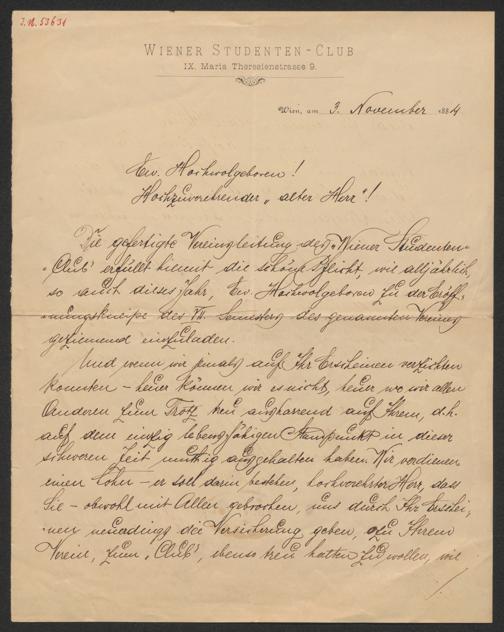 J.N. 53631
WIENER STUDENTEN-CLUB
IX. Maria Theresienstrasse 9.
Wien, am 3. November 1884
Ew. Hochwolgeboren!
Hochzuverehrender „alter Herr"!
Die gefertigte Vereinsleitung des „Wiener Studenten-
Club" erfüllt hiemit die schöne Pflicht, wie alljährlich,
so auch dieses Jahr, Ew. Hochwolgeboren zu der Eröff-
nungskneipe des VII. Semesters des genannten Vereins
geziemend einzuladen.
Und wenn wir jemals auf Ihr Erscheinen verzichten
konnten – heuer können wir es nicht, heuer wo wir allen
Anderen zum Trotz treu ausharrend auf Ihrem, d.h.
auf dem einzig lebensfähigen Standpunkt in dieser
schweren Zeit muthig ausgehalten haben. Wir verdienen
einen Lohn – er soll darin bestehen, hochverehrter Herr, dass
Sie – obwohl mit Allen gebrochen, uns durch Ihr Erschei-
nen neuerdings die Versicherung geben, zu Ihrem
Verein, zum „Club", ebenso treu halten zu wollen, wie